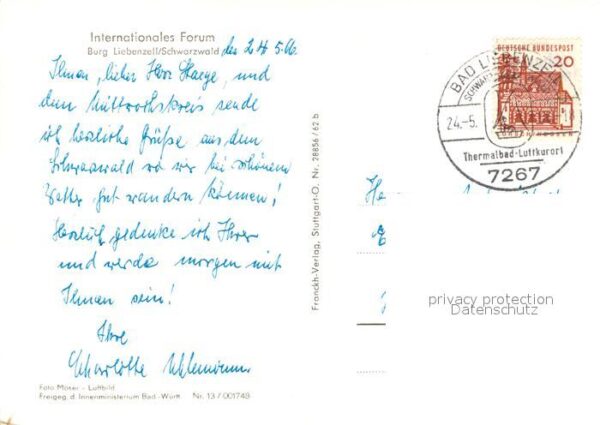 Internationales Forum
Burg Liebenzell/Schwarzwald
den 24.5.66
Ihnen, lieber Herr Staege, und
dem Mittwochskreis sende
ich herzliche Grüße aus dem
Schwarzwald wo wir bei schönem
Wetter gut wandern können!
Herzlich gedenke ich Ihrer
und werde morgen mit
Ihnen sein!
Ihre
Charlotte
Foto Moser - Luftbild
Freigeg. d. Innenministerium Bad.-Württ. Nr. 13/001748
Franckh-Verlag, Stuttgart-O. Nr. 28856/62.b
DEUTSCHE BUNDESPOST
20
BAD LIEBENZELL
24.-5.
Thermalbad-Luftkurort
7267
privacy protection
Datenschutz